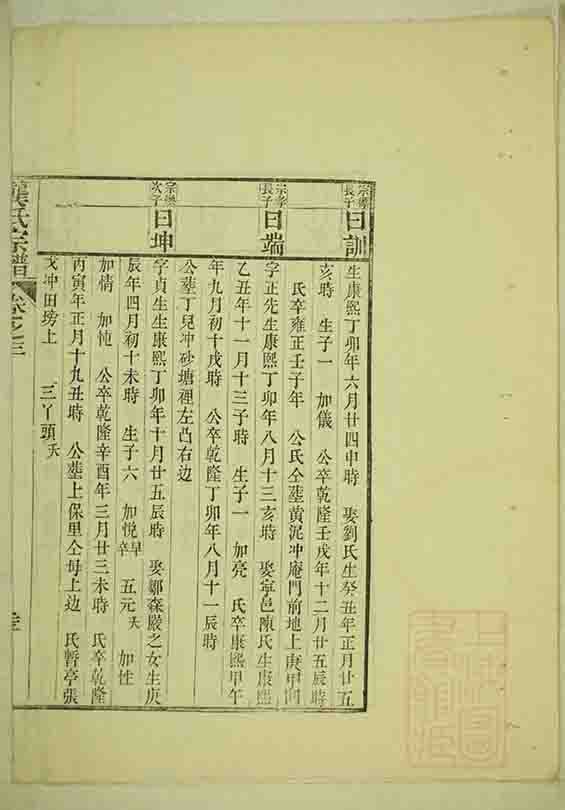 宗
長子
曰訓
生康熙丁卯年六月廿四申時 娶劉氏生癸丑年正月廿五
亥時 生子一 加儀 公卒乾隆壬戌年十二月廿五辰時
氏卒雍正壬子年 公氏仝塟黃泥冲庵門前地上庚甲向
宗孝
長子
曰端
字正先生康熙丁卯年八月十三亥時 娶寧邑陳氏生康熙
乙丑年十一月十三子時 生子一 加亮 氏卒康熙甲午
年九月初十戌時 公卒乾隆丁卯年八月十一辰時
公塟丁兒冲砂塘裡左凸右边
宗
次子
曰坤
字貞生生康熙丁卯年十月廿五辰時 娶鄒森嚴之女生庚
辰年四月初十未時 生子六 加悅早卒 五元夭 加性
加情 加忳 公卒乾隆辛酉年三月廿三未時 氏卒乾隆
丙寅年正月十九丑時 公塟上保里仝母上边 氏暫亭張
戈冲田塝上 三丫頭夭
龔氏宗譜 卷之三